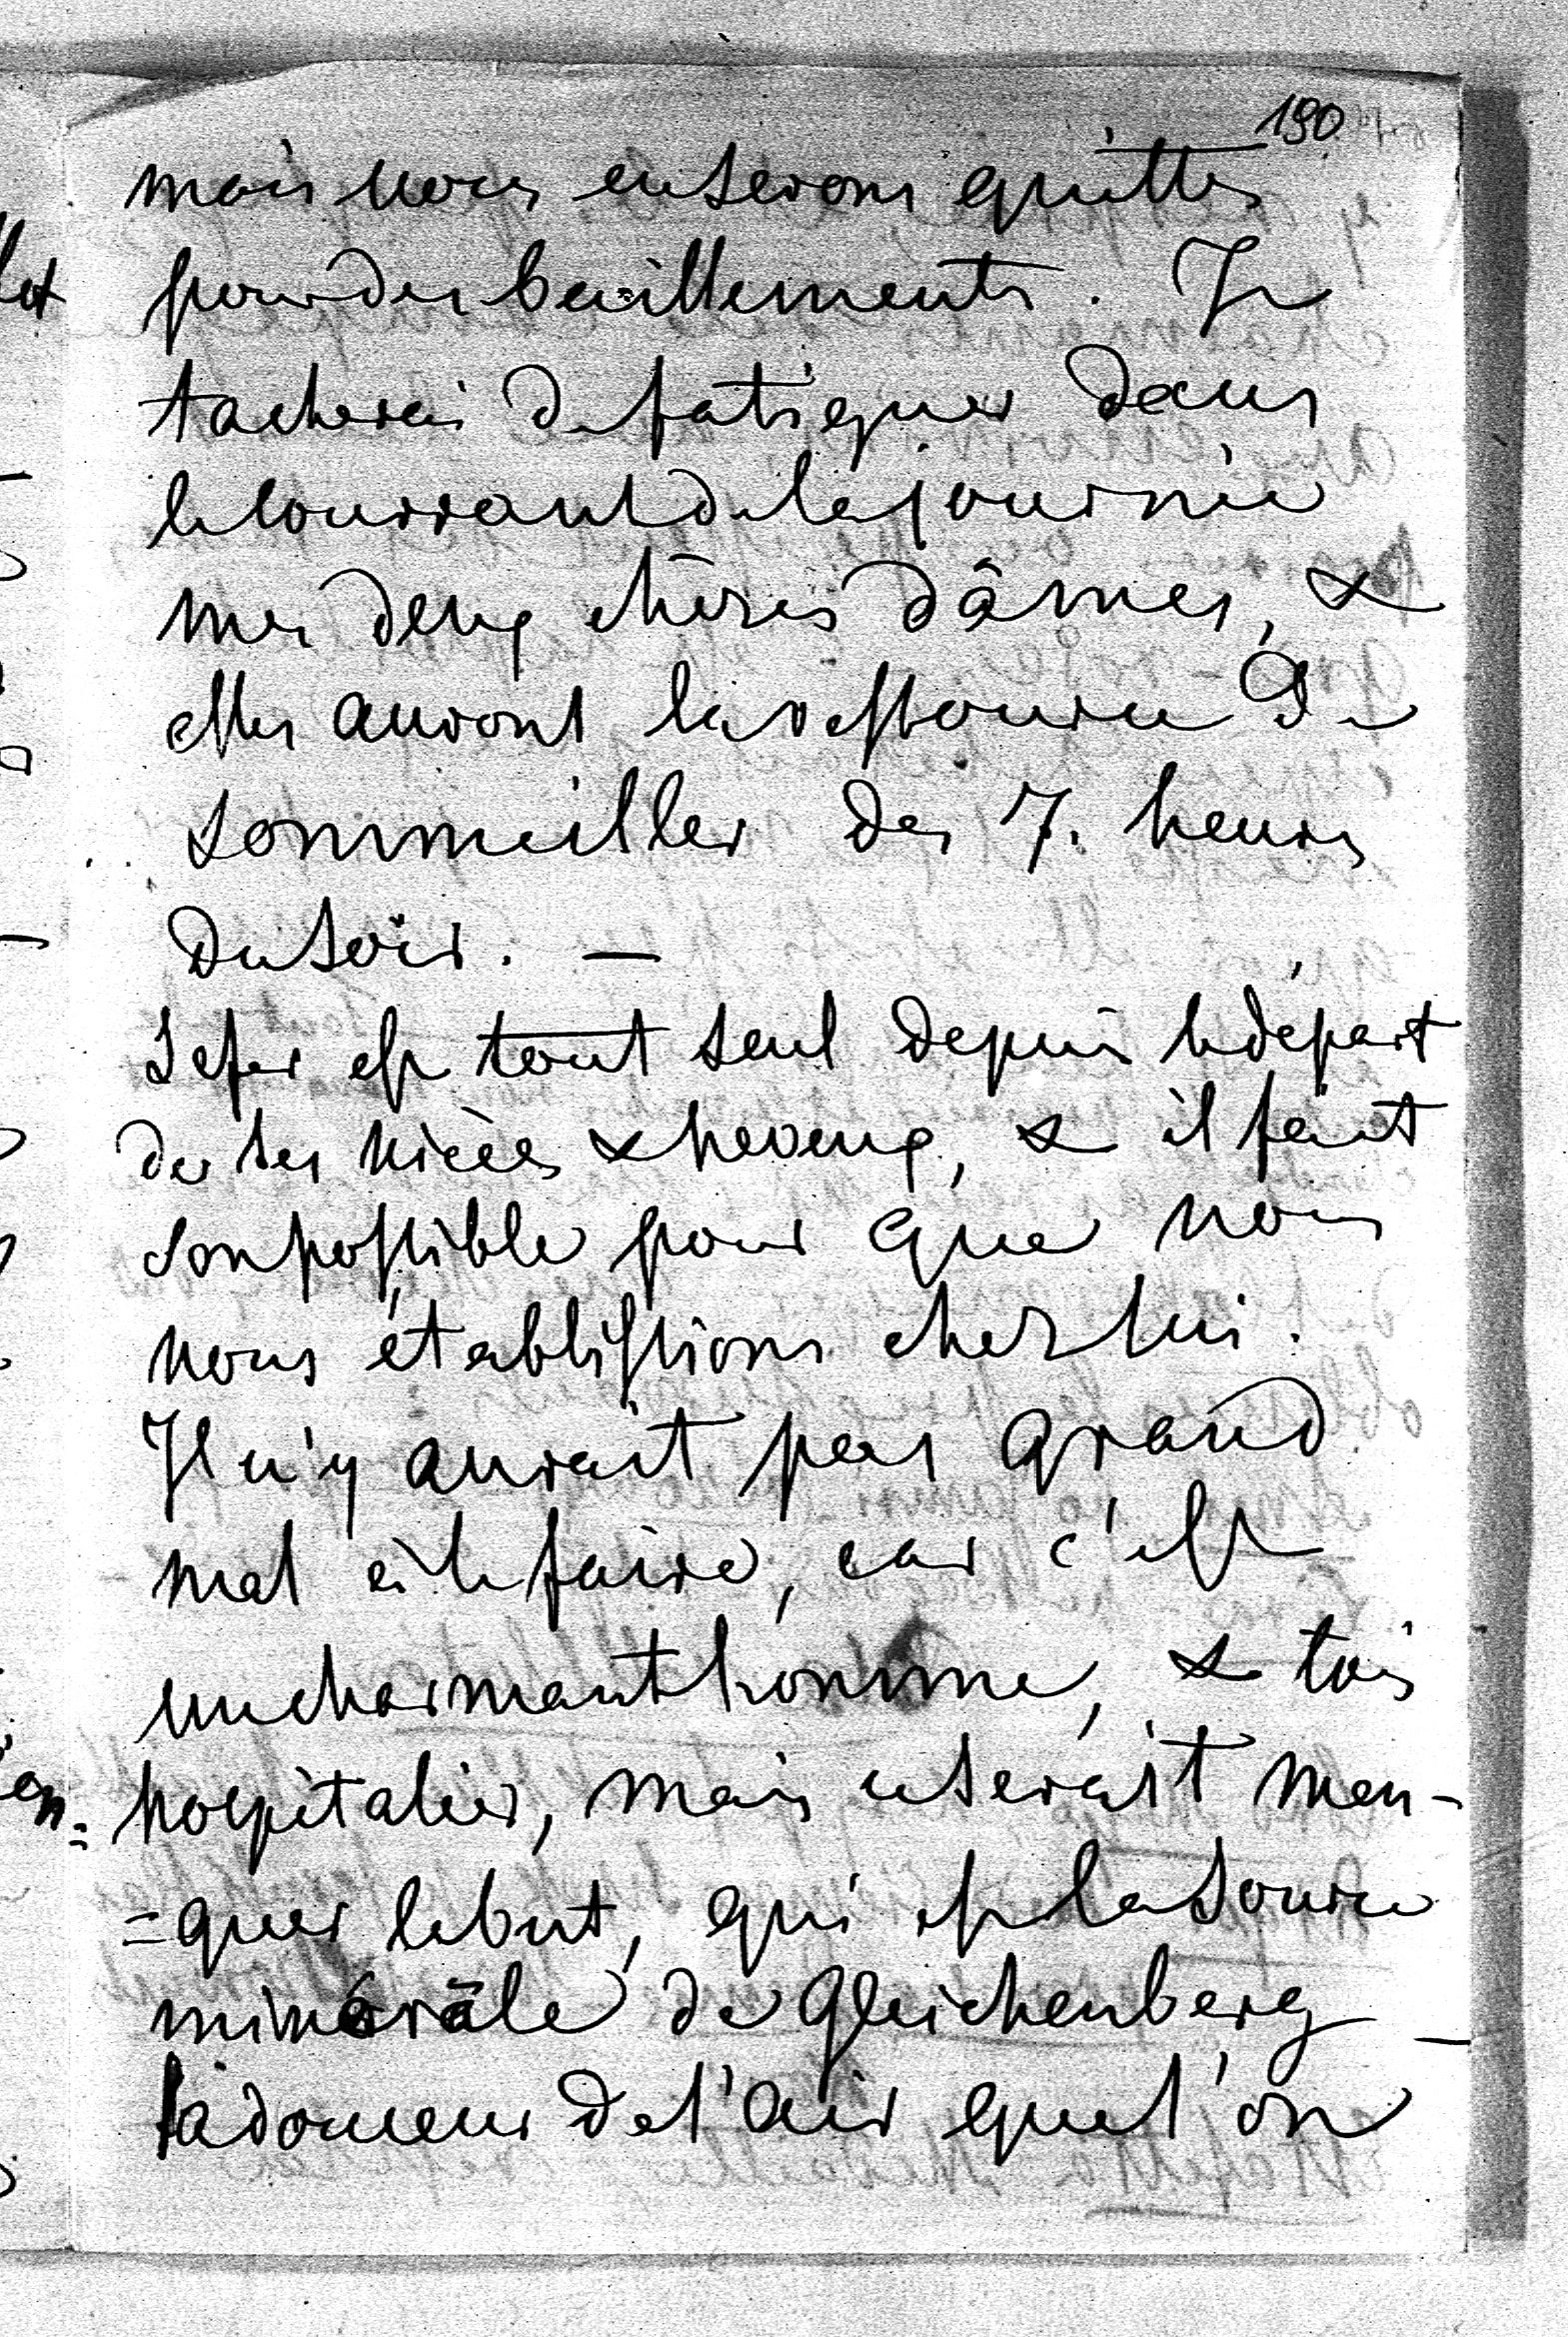 190
mais nous en serons quittes
pour des bâillements. Je
tacherai de fatiguer dans
le courrant de la journée
mes deux chères dâmes, &
elles auront la ressource de
sommeiller des 7. heures
du soir. —
est tout seul depuis le départ
de ses nièces & neveux, & il fait
son possible pour que nous
nous établissions chez lui.
Il n'y aurait pas grand
mal à le faire, car c'est
un charmant homme, & très
hospitalier, mais ce serait man-
=quer le but, qui est la source
minérâle de Gleichenberg —
la douceur de l'air que l'on